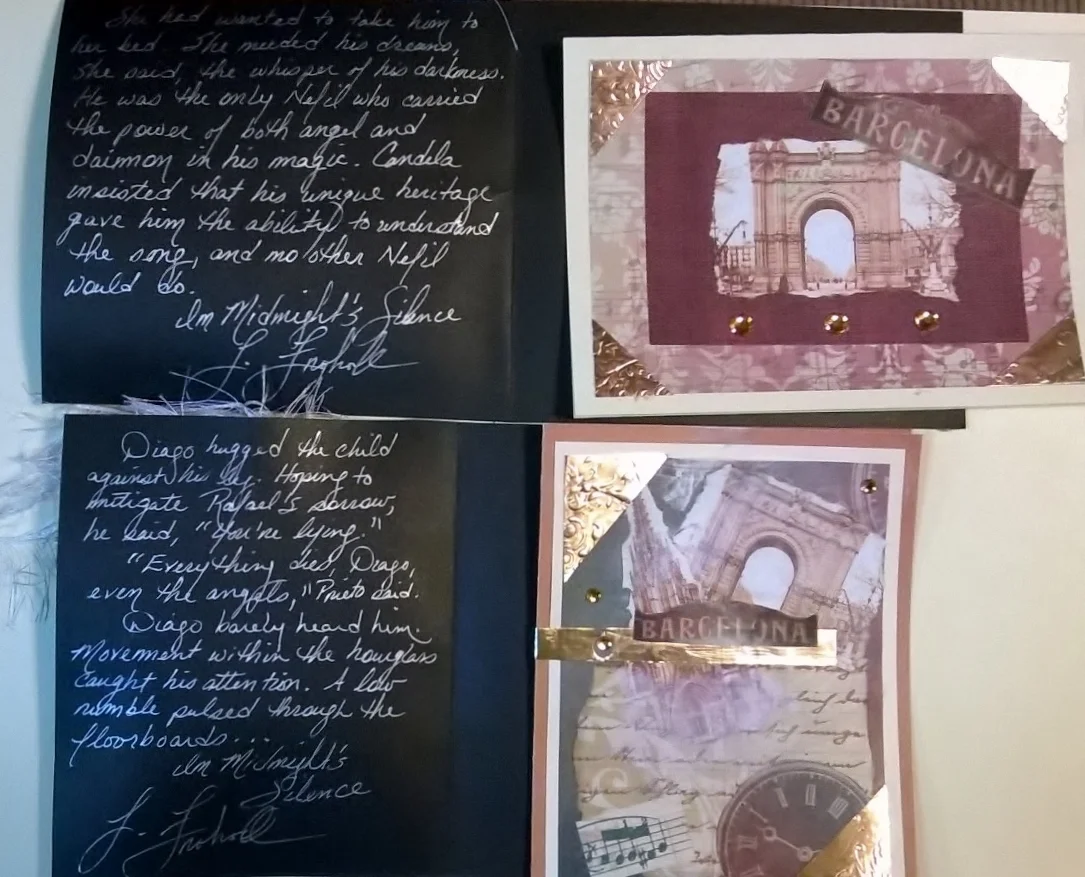 She had wanted to take him to
her bed. She needed his dreams,
she said, the whisper of his darkness.
He was the only Nefil who carried
the power of both angel and
daimon in his magic. Candela
insisted that his unique heritage
gave him the ability to understand
the song, and no other Nefil
would do.
In Midnight's Silence
T. Frohock
BARCELONA
Diago hugged the child
against his leg. Hoping to
mitigate Rafael's sorrow,
he said, "You're lying."
"Everything dies, Diago,
even the angels," Prieto said.
Diago barely heard him.
Movement within the hourglass
caught his attention. A low
rumble pulsed through the
floorboards...
In Midnight's
Silence
T. Frohock
BARCELONA